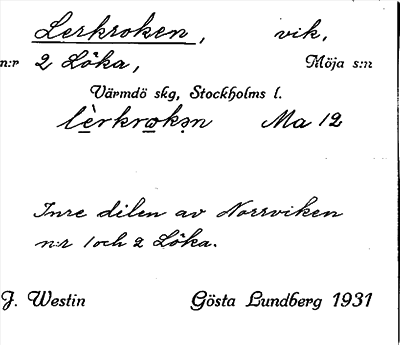 Lerkroken, vik,
n:r 2 Löka, Möja s:n
Värmdö skg, Stockholms l.
lèrkrωkən Ma 12
Inre dilen av Norrviken
n:r 1 och 2 Löka.
J. Westin Gösta Lundberg 1931